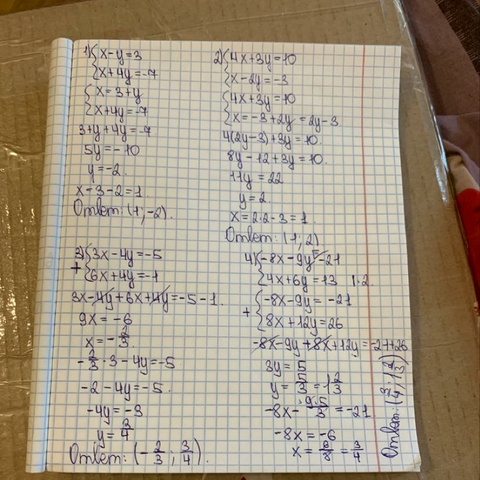 1) { x-y=3
x+4y=-7
{ x=3+y
x+4y=-7
3+y+4y=-7
5y=-10
y=-2
x-3-2=1
Ответ: (1;-2).
2) { 4x+3y=10
x-2y=-3
{ 4x+3y=10
x=-3+2y=2y-3
4(2y-3)+3y=10.
8y-12+3y=10.
11y=22
y=2
x=2·2-3=1.
Ответ: (1;2)
3) + { 3x-4y=-5
6x+4y=-1
3x-4y+6x+4y=-5-1.
9x=-6
x=-2/3
-2/3·3-4y=-5
-2-4y=-5.
-4y=-3
y=3/4
Ответ: (-2/3; 3/4).
4) { -8x-9y=-21
4x+6y=13 |·2
+ { -8x-9y=-21
8x+12y=26
-8x-9y+8x+12y=-21+26
3y=5
y=5/3=1 2/3
-8x-9·5/3=-21
-8x=-6
x=6/8=3/4
Ответ: (3/4; 1 2/3)